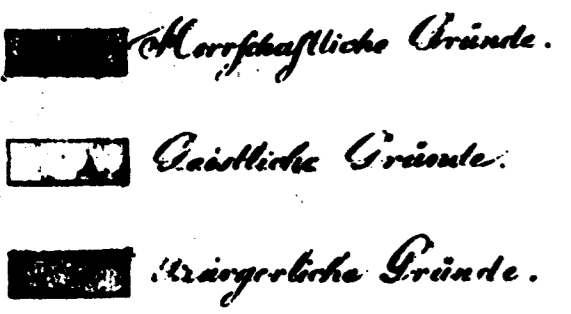 Herrschaftliche Gründe.
Geistliche Gründe.
Bürgerliche Gründe.